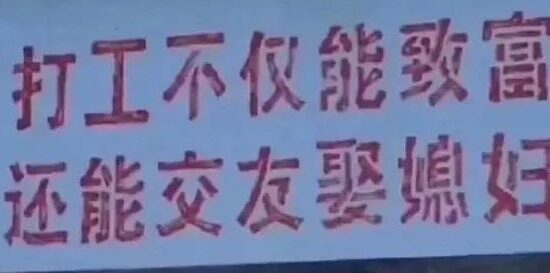 打工不仅能致富
还能交友娶媳妇